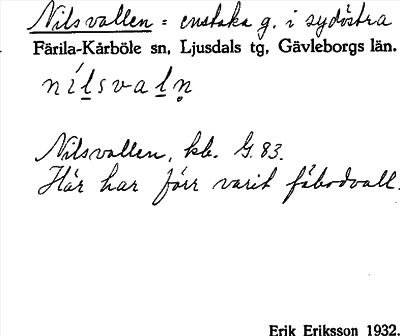 Nilsvallen = enstaka g. i sydöstra
Färila-Kårböle sn, Ljusdals tg, Gävleborgs län.
níl̲sval̲ṇ
Nilsvallen, kb. G. 83.
Här har förr varit fäbodvall.
Erik Eriksson 1932.